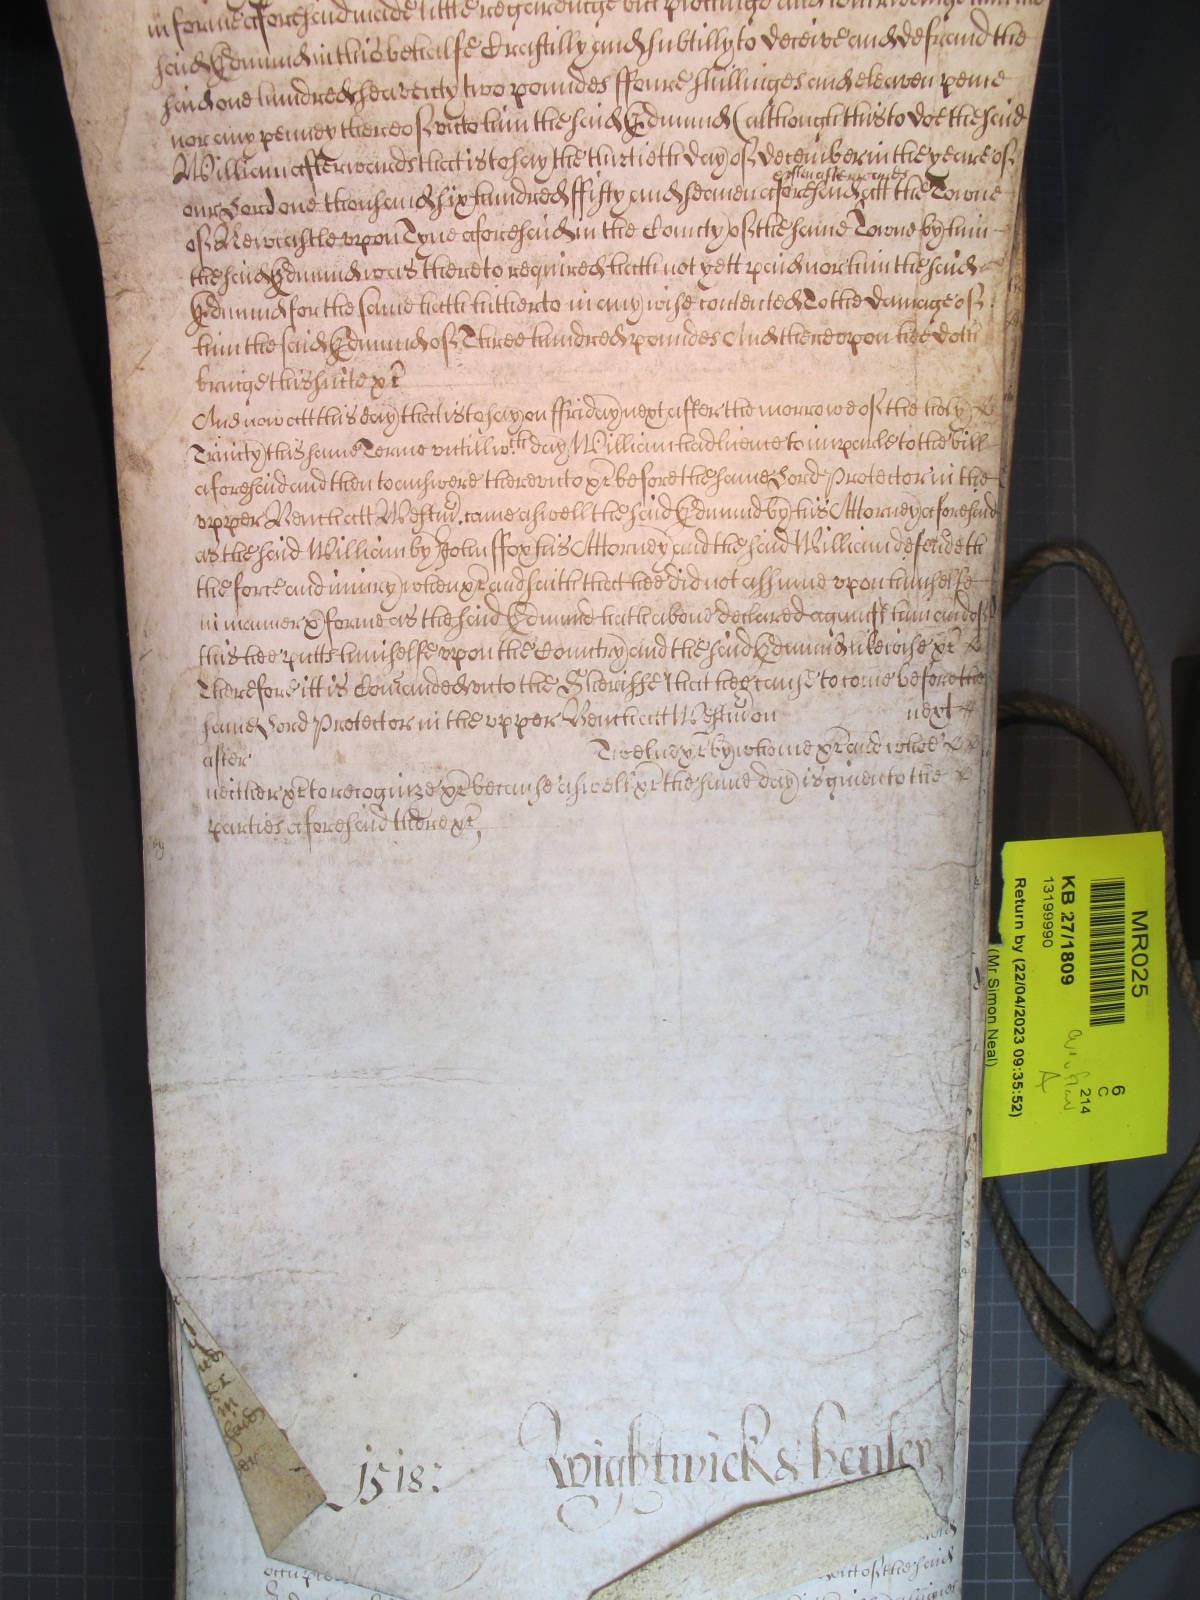 in forme aforesaid made little regardinge but plottinge and
said Edmund in this behalfe Craftilly and subtilly to deceive and defraud the
said one hundred seaventy two poundes ffoure shillinges and eleaven pence
nor any penney thereof unto him the said Edmund (although this to doe the said
William afterwards that is to say the thirtieth day of December in the yeare of
our Lord one thousand six hundred ffifty and seaven aforesaid att the Towne
of Newcastle upon Tyne aforesaid in the County of the same Towne by him
the said Edmund was thereto required hath not yett paid nor him the said
Edmund for the same hath hitherto in any wise contented To the damage of
him the said Edmund of Three hundred poundes And thereupon hee doth
bringe this suite &c
And now att this day that is to say on ffriday next after the morrowe of the holy
Trinity this same Terme untill wch day William had licence to imparle to the bill
aforesaid and then to answere thereunto &c before the same Lord Protector in the
upper Bench att Westmr. came aswell the said Edmund by his Attorney aforesaid
as the said William by John ffox his Attorney and the said William defendeth
the force and iniury when &c and saith that hee did not assume upon himselfe
in manner & forme as the said Edmund hath above declared against him and of
this hee putts himselfe upon the Country and the said Edmund likewise &c
Therefore itt is Comanded unto the Sheriffe that hee cause to come before the
same Lord Protector in the upper Bench att Westmr on next
after Twelve &c by whome &c and whoe
neither &c to recognize &c because aswell &c the same day is given to the
parties aforesaid there &c
1518:
Wightwick & Hensley
in
said
wnt of the said
MR025
KB 27/1809
13199990
6
C
214
A
Return by (22/04/2023 09:35:52)
(Mr Simon Neal)